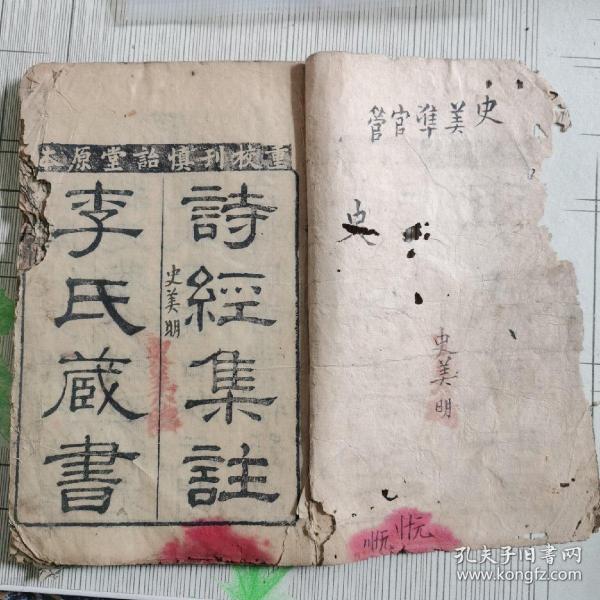 史美準官管
史
史美明
重校刊慎詒堂原本
詩經集註
史美明
李氏藏書
孔夫子旧书网
www.kongfz.com